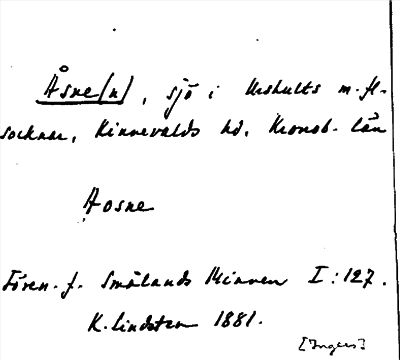 Åsne(n), sjö i Urshults m. fl.
socknar, Kinnevalds hd, Kronob. län
Aosne
Fören. f. Smålands Minnen I: 127.
K. Lindston 1881.
[Ingers]